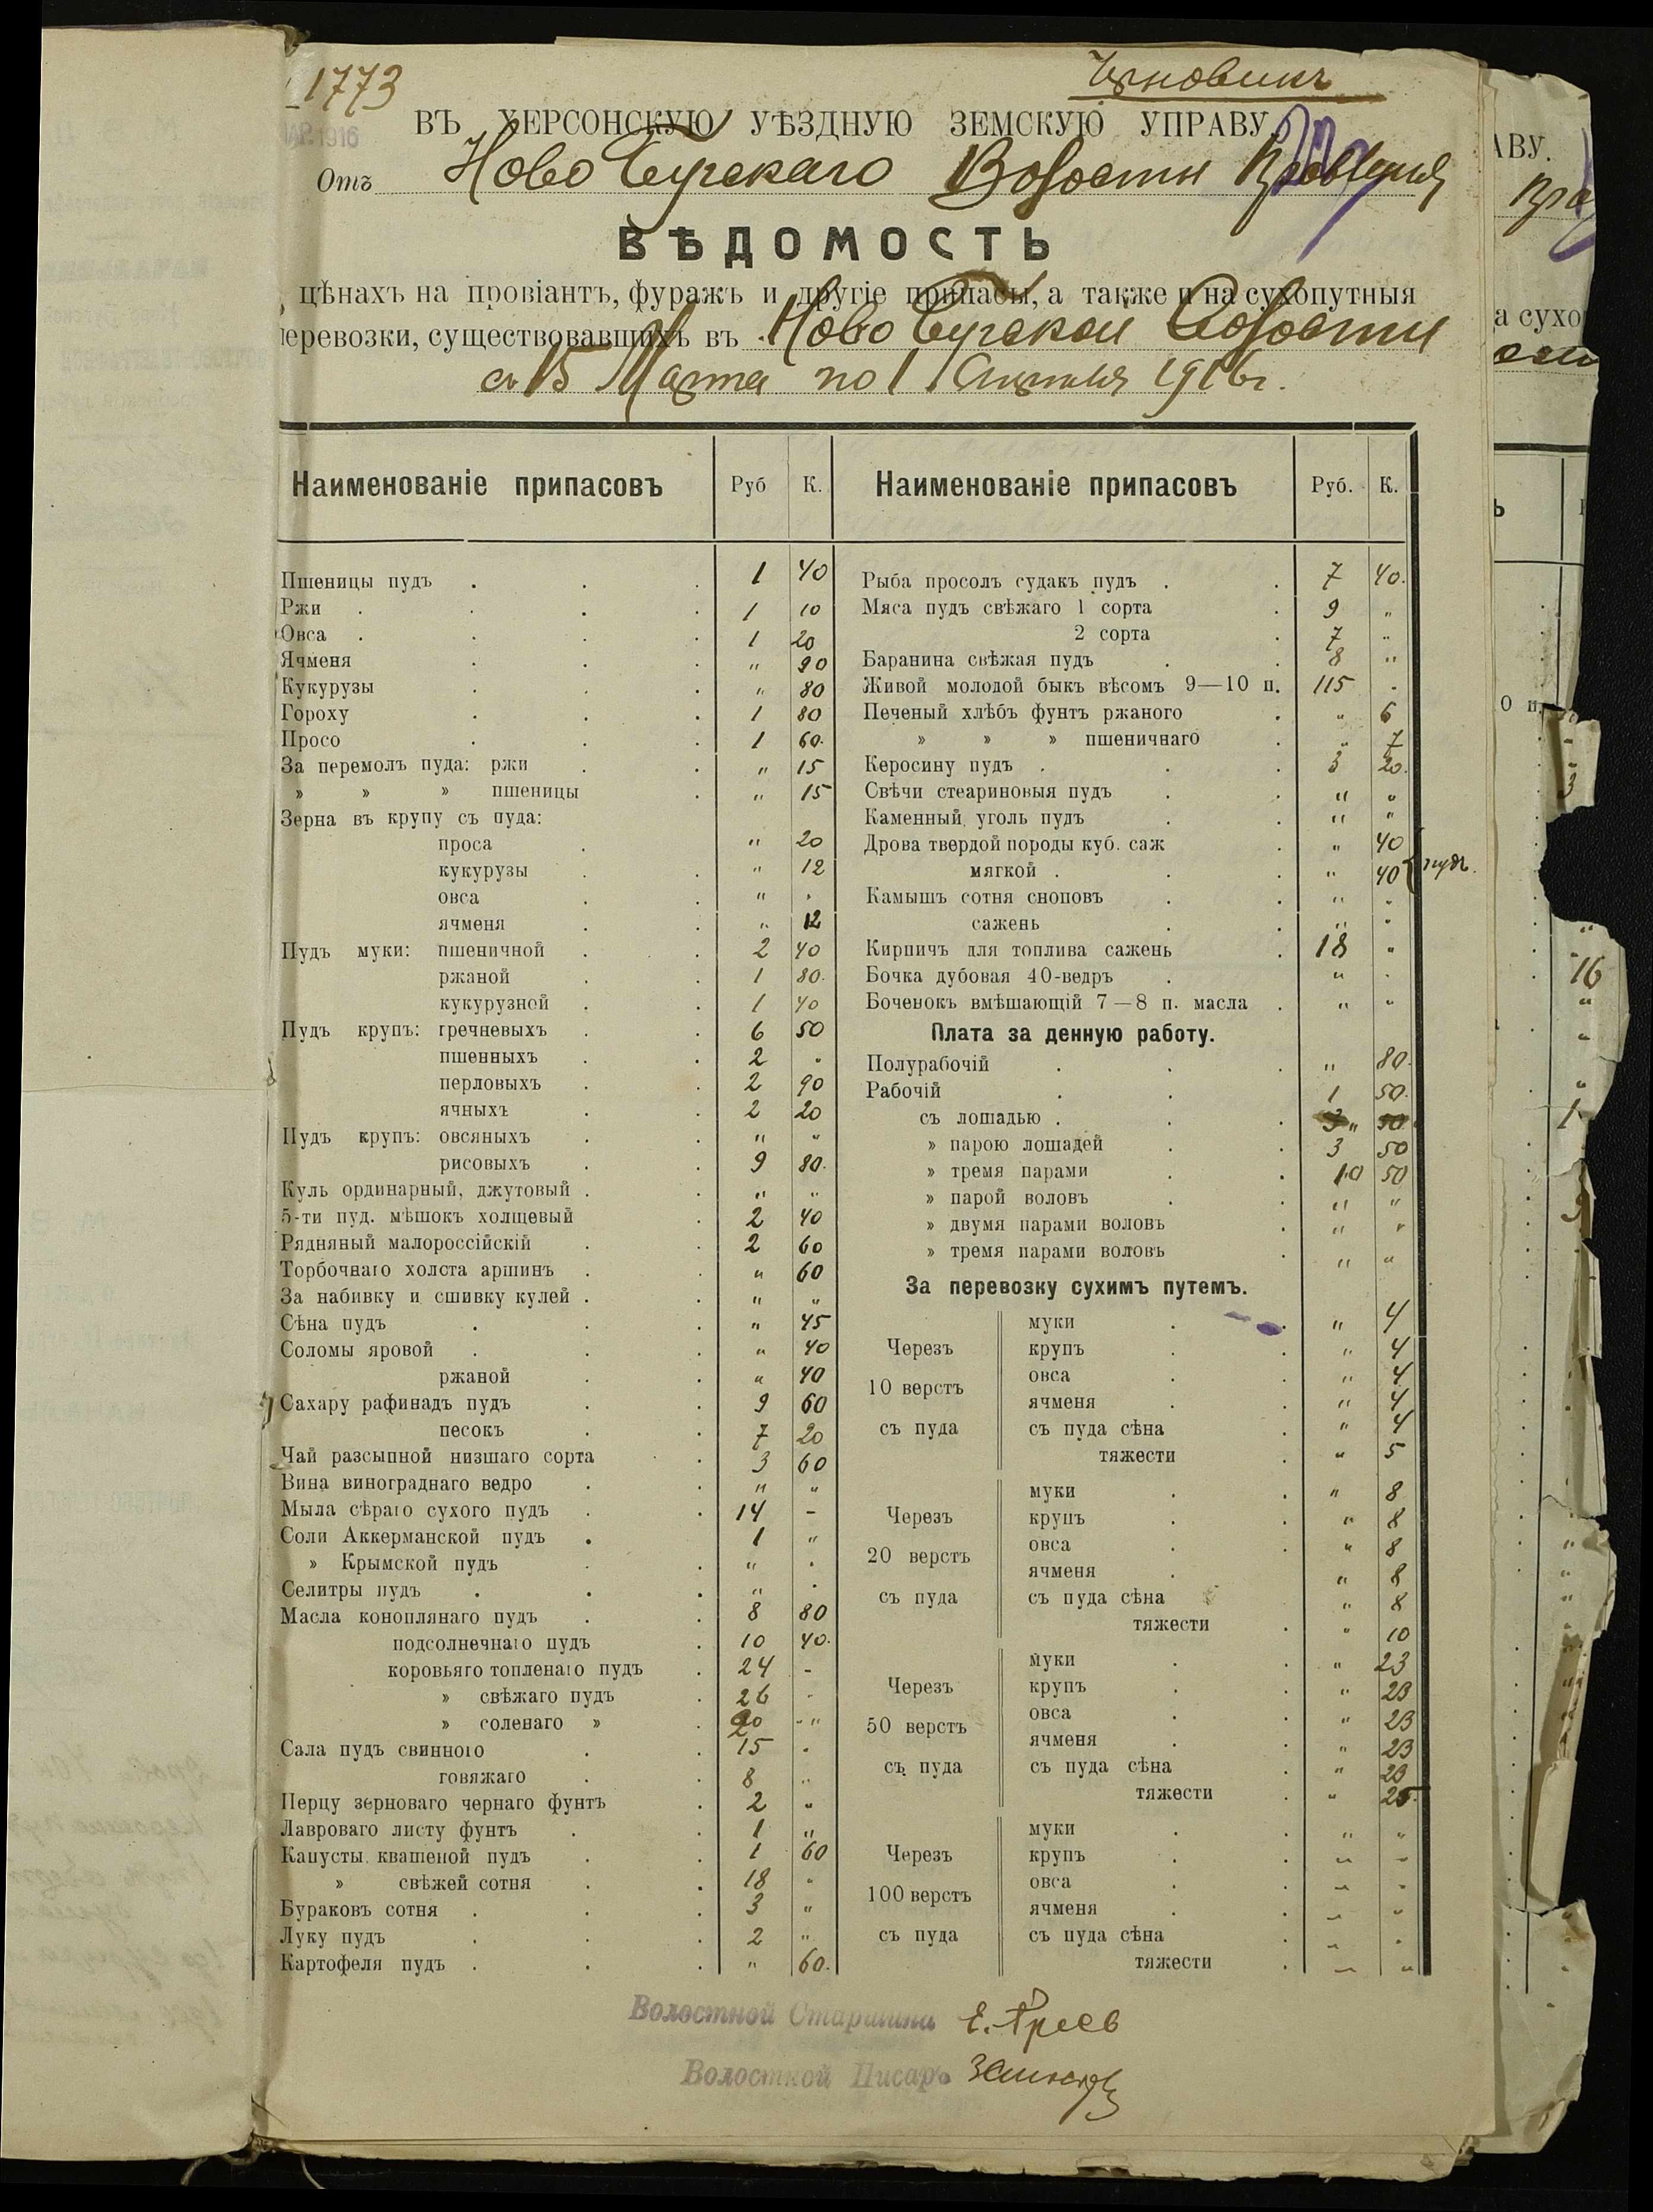 1773
Черновикъ
АР. 1916
ВЪ ХЕРСОНСКУЮ УѢЗДНУЮ ЗЕМСКУЮ УПРАВУ.
Отъ Ново Бугскаго Волостн Правленія
ВѢДОМОСТЬ
цѣнахъ на провіантъ, фуражъ и другіе припасы, а также и на сухопутныя
перевозки, существовавшихъ въ Ново Бугской Волости
съ 15 Марта по 1 Апрѣля 1916 г.
Наименованіе припасовъ Руб К.
Пшеницы пудъ 1 40
Ржи 1 10
Овса 1 20
Ячменя " 90
Кукурузы " 80
Гороху 1 80
Просо 1 60
За перемолъ пуда: ржи " 15
» » » пшеницы " 15
Зерна въ крупу съ пуда:
проса " 20
кукурузы " 12
овса " "
ячменя " 12
Пудъ муки: пшеничной 2 40
ржаной 1 80
кукурузной 1 40
Пудъ крупъ: гречневыхъ 6 50
пшенныхъ 2 "
перловыхъ 2 90
ячныхъ 2 20
Пудъ крупъ: овсяныхъ " "
рисовыхъ 9 80
Куль ординарный, джутовый " "
5-ти пуд. мѣшокъ холщевый 2 40
Рядняный малороссійскій 2 60
Торбочнаго холста аршинъ " 60
За набивку и сшивку кулей " "
Сѣна пудъ " 45
Соломы яровой " 40
ржаной " 40
Сахару рафинадъ пудъ 9 60
песокъ 7 20
Чай разсыпной низшаго сорта 3 60
Вина винограднаго ведро " "
Мыла сѣраго сухого пудъ 14 -
Соли Аккерманской пудъ 1 "
» Крымской пудъ " "
Селитры пудъ " "
Масла коноплянаго пудъ 8 80
подсолнечнаго пудъ 10 40
коровьяго топленаго пудъ 24 -
» свѣжаго пудъ 26 -
» соленаго » 20 - "
Сала пудъ свинного 15 "
говяжаго 8 "
Перцу зерноваго чернаго фунтъ 2 "
Лавроваго листу фунтъ 1 "
Капусты квашеной пудъ 1 60
» свѣжей сотня 18 "
Бураковъ сотня 3 "
Луку пудъ 2 "
Картофеля пудъ " 60
Наименованіе припасовъ Руб. К.
Рыба просолъ судакъ пудъ 7 40
Мяса пудъ свѣжаго 1 сорта 9 "
2 сорта 7 "
Баранина свѣжая пудъ 8 "
Живой молодой быкъ вѣсомъ 9—10 п. 115 "
Печеный хлѣбъ фунтъ ржаного " 6
» » » пшеничнаго " 7
Керосину пудъ 3 20
Свѣчи стеариновыя пудъ " "
Каменный уголь пудъ " "
Дрова твердой породы куб. саж " 40
мягкой " 40 } пудъ.
Камышъ сотня сноповъ " "
сажень " "
Кирпичъ для топлива сажень 18 "
Бочка дубовая 40-ведръ " "
Боченокъ вмѣшающій 7—8 п. масла " "
Плата за денную работу.
Полурабочій " 80
Рабочій 1 50
съ лошадью 3 " 50
» парою лошадей 3 50
» тремя парами 10 50
» парой воловъ " "
» двумя парами воловъ " "
» тремя парами воловъ " "
За перевозку сухимъ путемъ.
Черезъ 10 верстъ съ пуда
муки " 4
крупъ " 4
овса " 4
ячменя " 4
съ пуда сѣна " 4
тяжести " 5
Черезъ 20 верстъ съ пуда
муки " 8
крупъ " 8
овса " 8
ячменя " 8
съ пуда сѣна " 8
тяжести " 10
Черезъ 50 верстъ съ пуда
муки " 23
крупъ " 23
овса " 23
ячменя " 23
съ пуда сѣна " 23
тяжести " 25
Черезъ 100 верстъ съ пуда
муки " "
крупъ " "
овса " "
ячменя " "
съ пуда сѣна " "
тяжести " "
Волостной Старшина
Волостной Писарь
АВУ.
а сухо
16